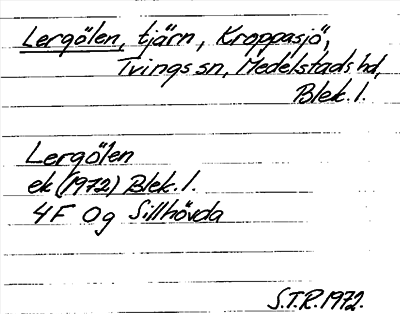 Lergölen, tjärn, Kroppasjö,
Tvings sn, Medelstads hd,
Blek. l.
Lergölen
ek (1972) Blek. l.
4F 0g Sillhövda
S.T.R. 1972.